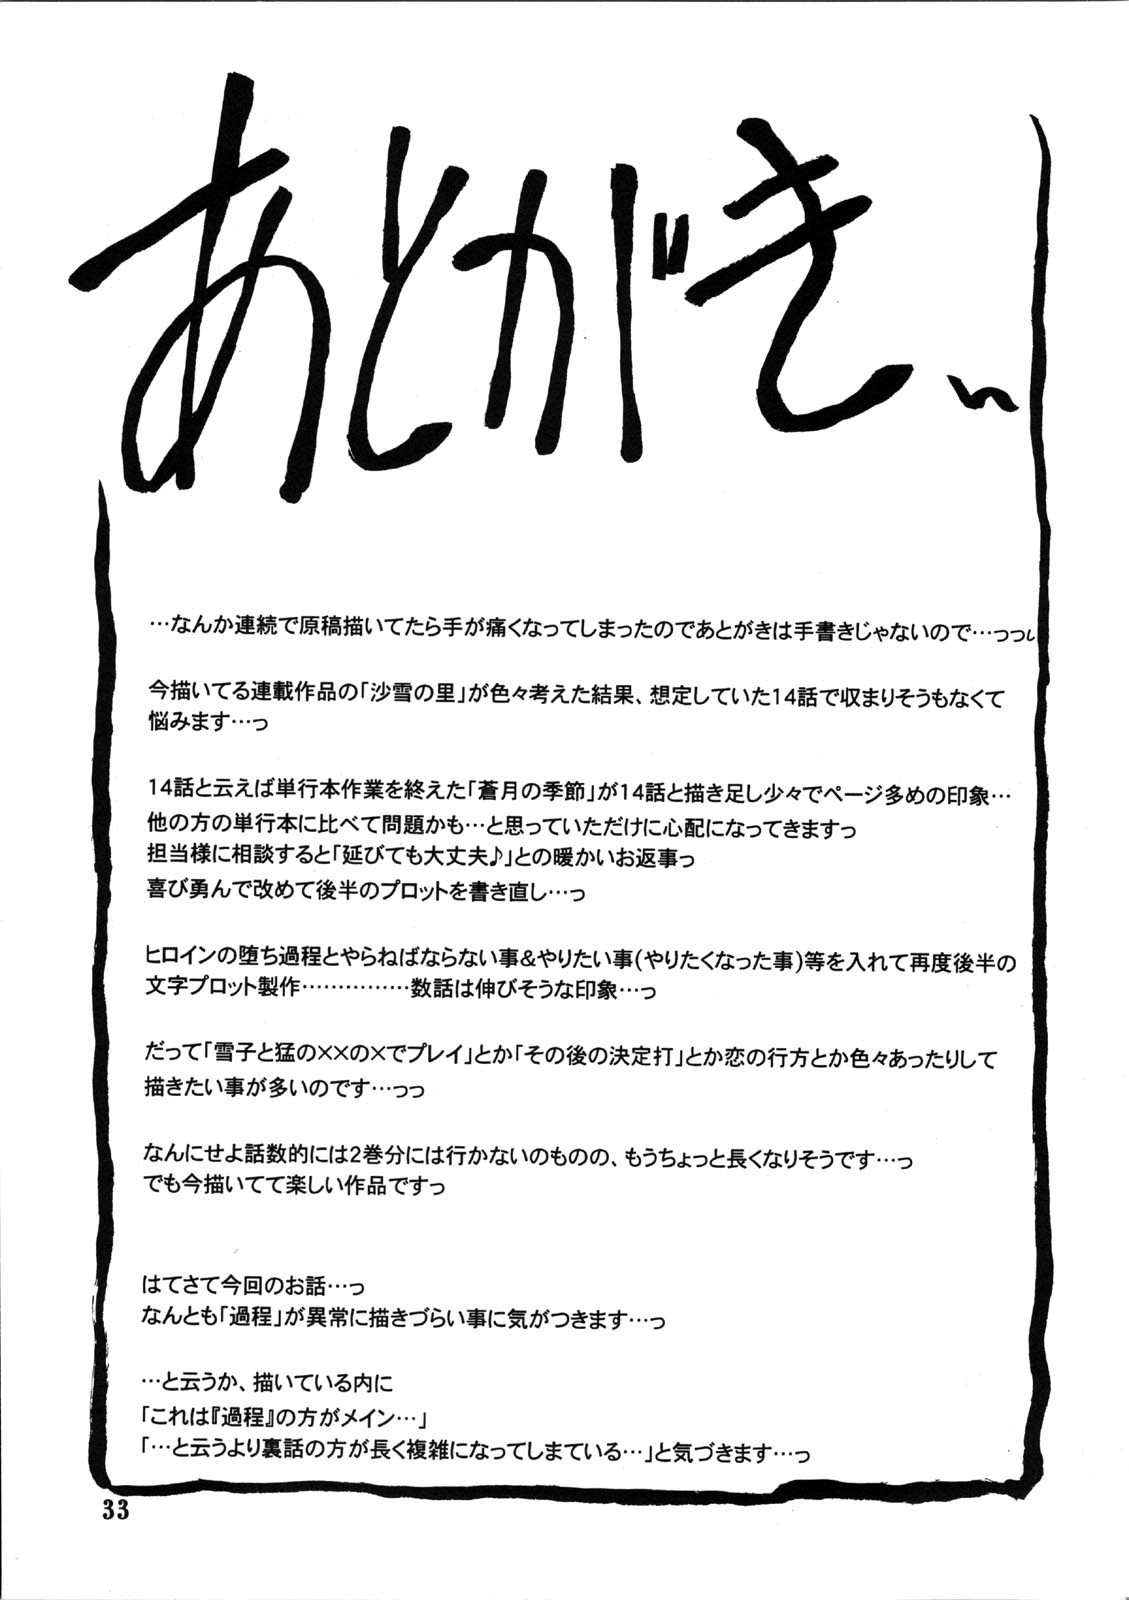 あとがきぃ
…なんか連続で原稿描いてたら手が痛くなってしまったのであとがきは手書きじゃないので…っっ
今描いてる連載作品の「沙雪の里」が色々考えた結果、想定していた14話で収まりそうもなくて
悩みます…っ
14話と云えば単行本作業を終えた「蒼月の季節」が14話と描き足し少々でページ多めの印象…
他の方の単行本に比べて問題かも…と思っていただけに心配になってきますっ
担当様に相談すると「延びても大丈夫♪」との暖かいお返事っ
喜び勇んで改めて後半のプロットを書き直し…っ
ヒロインの堕ち過程とやらねばならない事&やりたい事(やりたくなった事)等を入れて再度後半の
文字プロット製作……………数話は伸びそうな印象…っ
だって「雪子と猛の××の×でプレイ」とか「その後の決定打」とか恋の行方とか色々あったりして
描きたい事が多いのです…っっ
なんにせよ話数的には2巻分には行かないのものの、もうちょっと長くなりそうです…っ
でも今描いてて楽しい作品ですっ
はてさて今回のお話…っ
なんとも「過程」が異常に描きづらい事に気がつきます…っ
…と云うか、描いている内に
「これは『過程』の方がメイン…」
「…と云うより裏話の方が長く複雑になってしまている…」と気づきます…っ
33